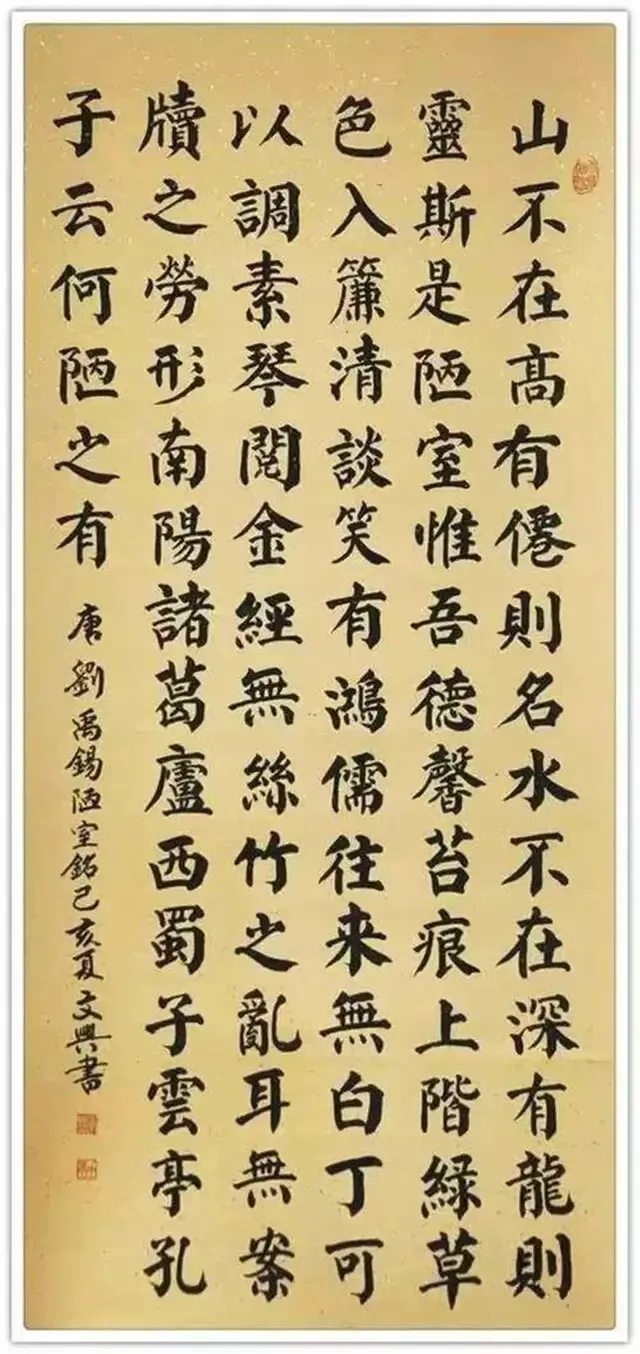 山不在高有僊則名水不在深有龍則
靈斯是陋室惟吾德馨苔痕上階緑草
色入簾清談笑有鴻儒往来無白丁可
以調素琴閱金經無絲竹之亂耳無案
牘之勞形南陽諸葛廬西蜀子雲亭孔
子云何陋之有
唐劉禹錫陋室銘己亥夏文興書